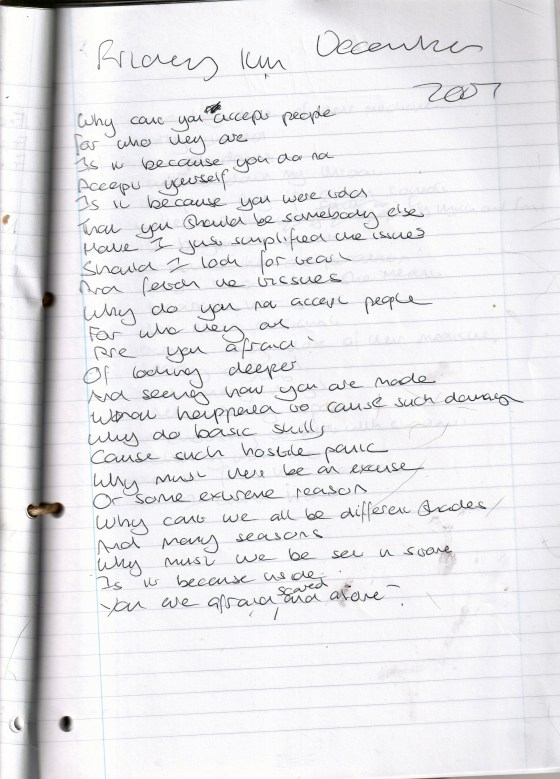 Friday 14th December
2007
Why cant you accept people
For who they are
Is it because you do not
Accept yourself
Is it because you were told
That you should be somebody else
Have I just simplified the issues
Should I look for tears
And fetch the tissues
Why do you not accept people
For who they are
Are you afraid
Of looking deeper
And seeing how you are made
What happened to cause such damage
Why do basic skills
Cause such hostile panic
Why must there be an excuse
Or some extreme reason
Why cant we all be different shades
And many seasons
Why must we be set in stone
Is it because inside
You are afraid, scared and alone?